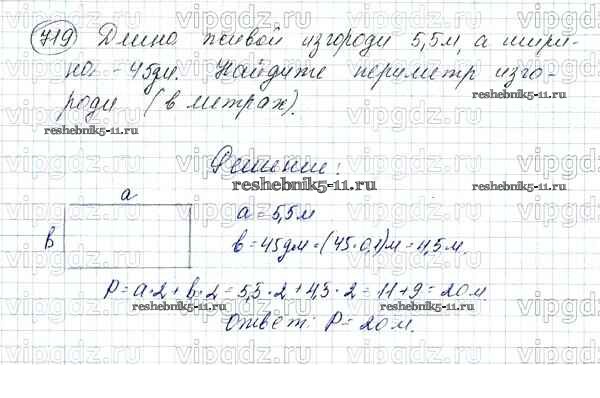 719 Длина живой изгороди 5,5м, а шири-
на - 45дм. Найдите периметр изго-
роди (в метрах).
reshebnik5-11.ru
reshebnik5-11.ru
Решение:
reshebnik5-11.ru
reshebnik5-11.ru
a
a = 5,5м
B
в = 45дм = (45·0,1)м = 4,5м.
P = a·2 + в·2 = 5,5·2 + 4,5·2 = 11+9 = 20м.
reshebnik5-11.ru
reshebnik5-11.ru
Ответ: P = 20м.
vipgdz.ru